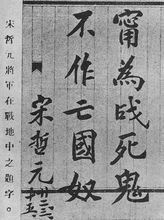 甯為战死鬼
不作亡國奴
宋哲元
廿二、三、十五、
宋哲元將軍在戰地中之題字。